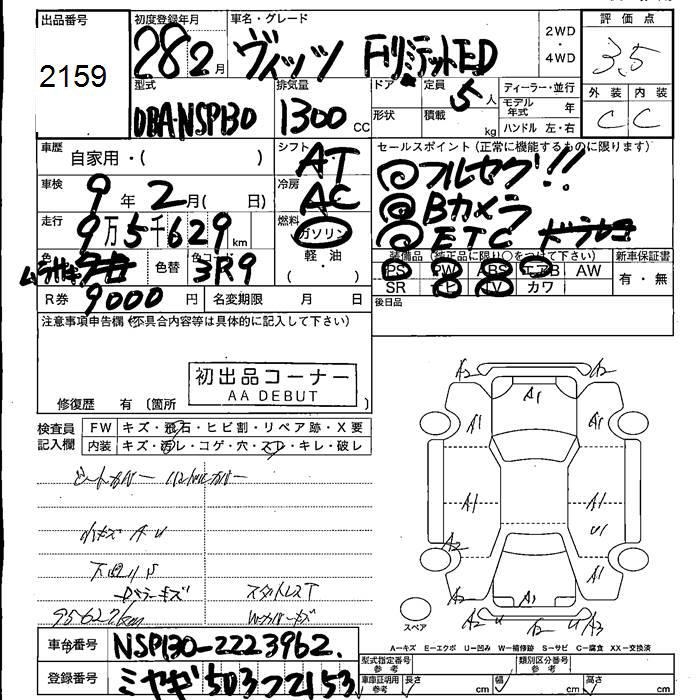 出品番号 初度登録年月 車名・グレード 2WD・4WD 評価点
2159 28 2月 ヴィッツ FリミテットED 3.5
型式 排気量 ドア 定員 5人 ディーラー・並行 外装 内装
DBA-NSP130 1300 CC 形状 積載 kg モデル年式 年 C C
ハンドル 左・右
車歴 自家用・( ) シフト AT セールスポイント(正常に機能するものに限ります)
◎フルセグ!!
車検 9年2月( 日) 冷房 AC ◎Bカメラ
走行 9万5千629km 燃料 ガソリン ◎ETC
軽油
( )
色 色替 色コード 3R9 装備品(純正品に限り○をつけて下さい) 新車保証書
PS PW ABS エアB AW 有・無
SR ナビ TV カワ
R券 9000円 名変期限 月 日 後日品
注意事項申告欄(不具合内容等は具体的に記入して下さい)
初出品コーナー
AA DEBUT
修復歴 有(箇所 )
検査員記入欄 FW キズ・飛石・ヒビ割・リペア跡・X要
内装 キズ・汚レ・コゲ・穴・スレ・キレ・破レ
シートカバー ハンドルカバー
小キズ A U
スタットレスT
95627km
A2 A2
A1
A1 A1
A1 A1
A2 U1
A1
A2 A2
A2 U A2 U A3
スペア
A-キズ E-エクボ U-凹み W-補修跡 S-サビ C-腐食 XX-交換済
車台番号 NSP130-2223962.
登録番号 ミヤギ503つ2153
型式指定番号 参考 類別区分番号 参考
車庫証明用 参考 長さ cm 幅 cm 高さ cm